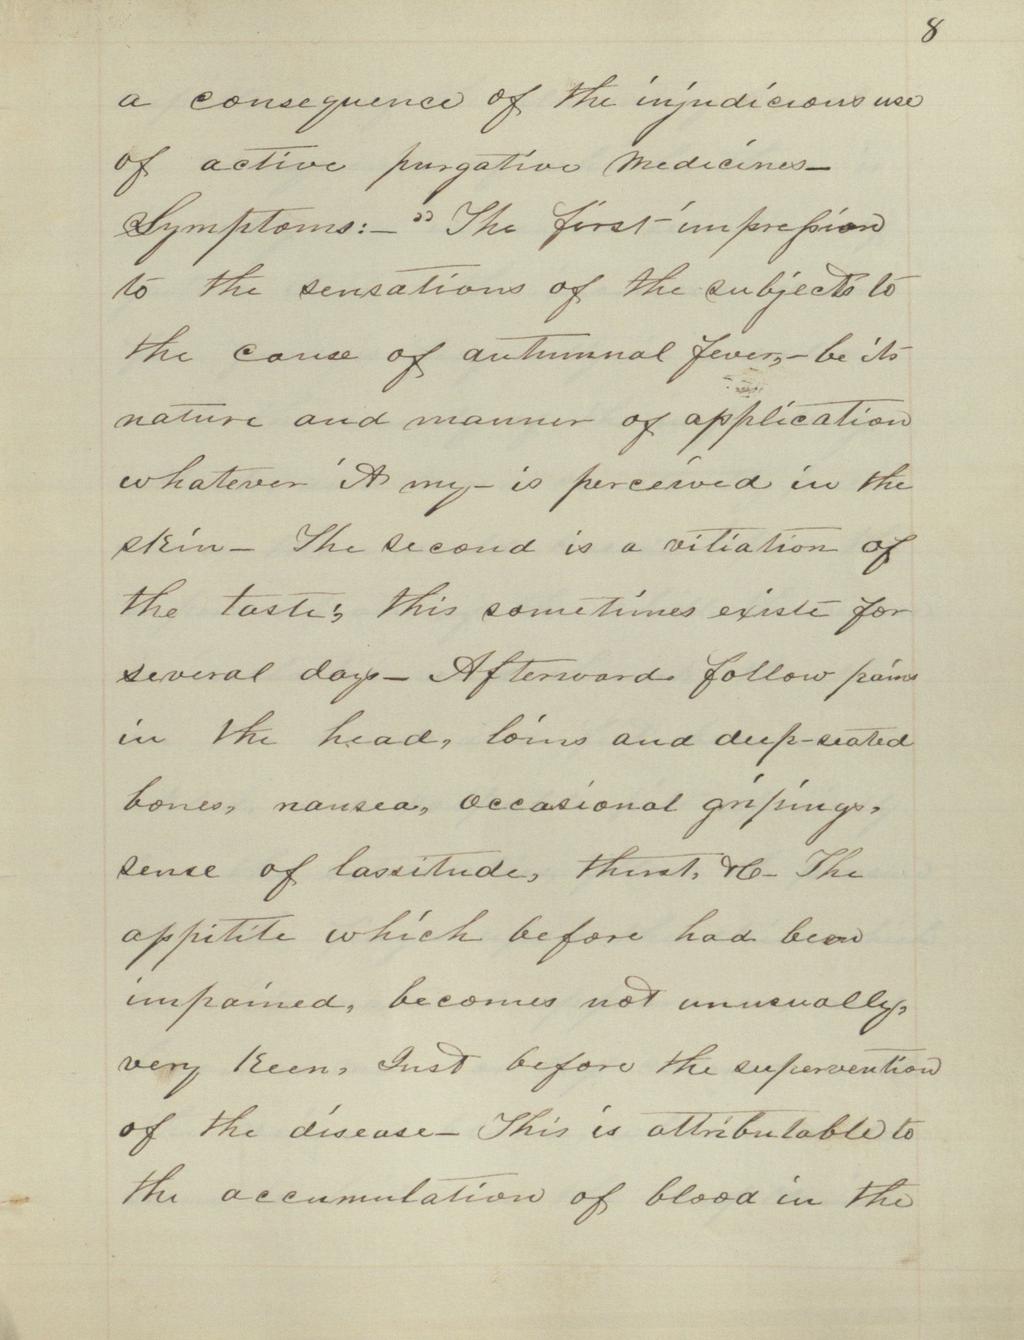 8
a consequence of the injudicious use
of active purgative medicines—
Symptoms:— "The first impression
to the sensations of the subjects to
the cause of autumnal fever,—be its
nature and manner of application
whatever it my— is perceived in the
skin— The second is a vitiation of
the taste; this sometimes exists for
several days— Afterward follow pains
in the head, loins and deep-seated
bones, nausea, occasional gripings,
sense of lassitude, thirst, &c— The
appitite which before had been
impaired, becomes not unusually,
very keen, Just before the supervention
of the disease— This is attributable to
the accumulation of blood in the